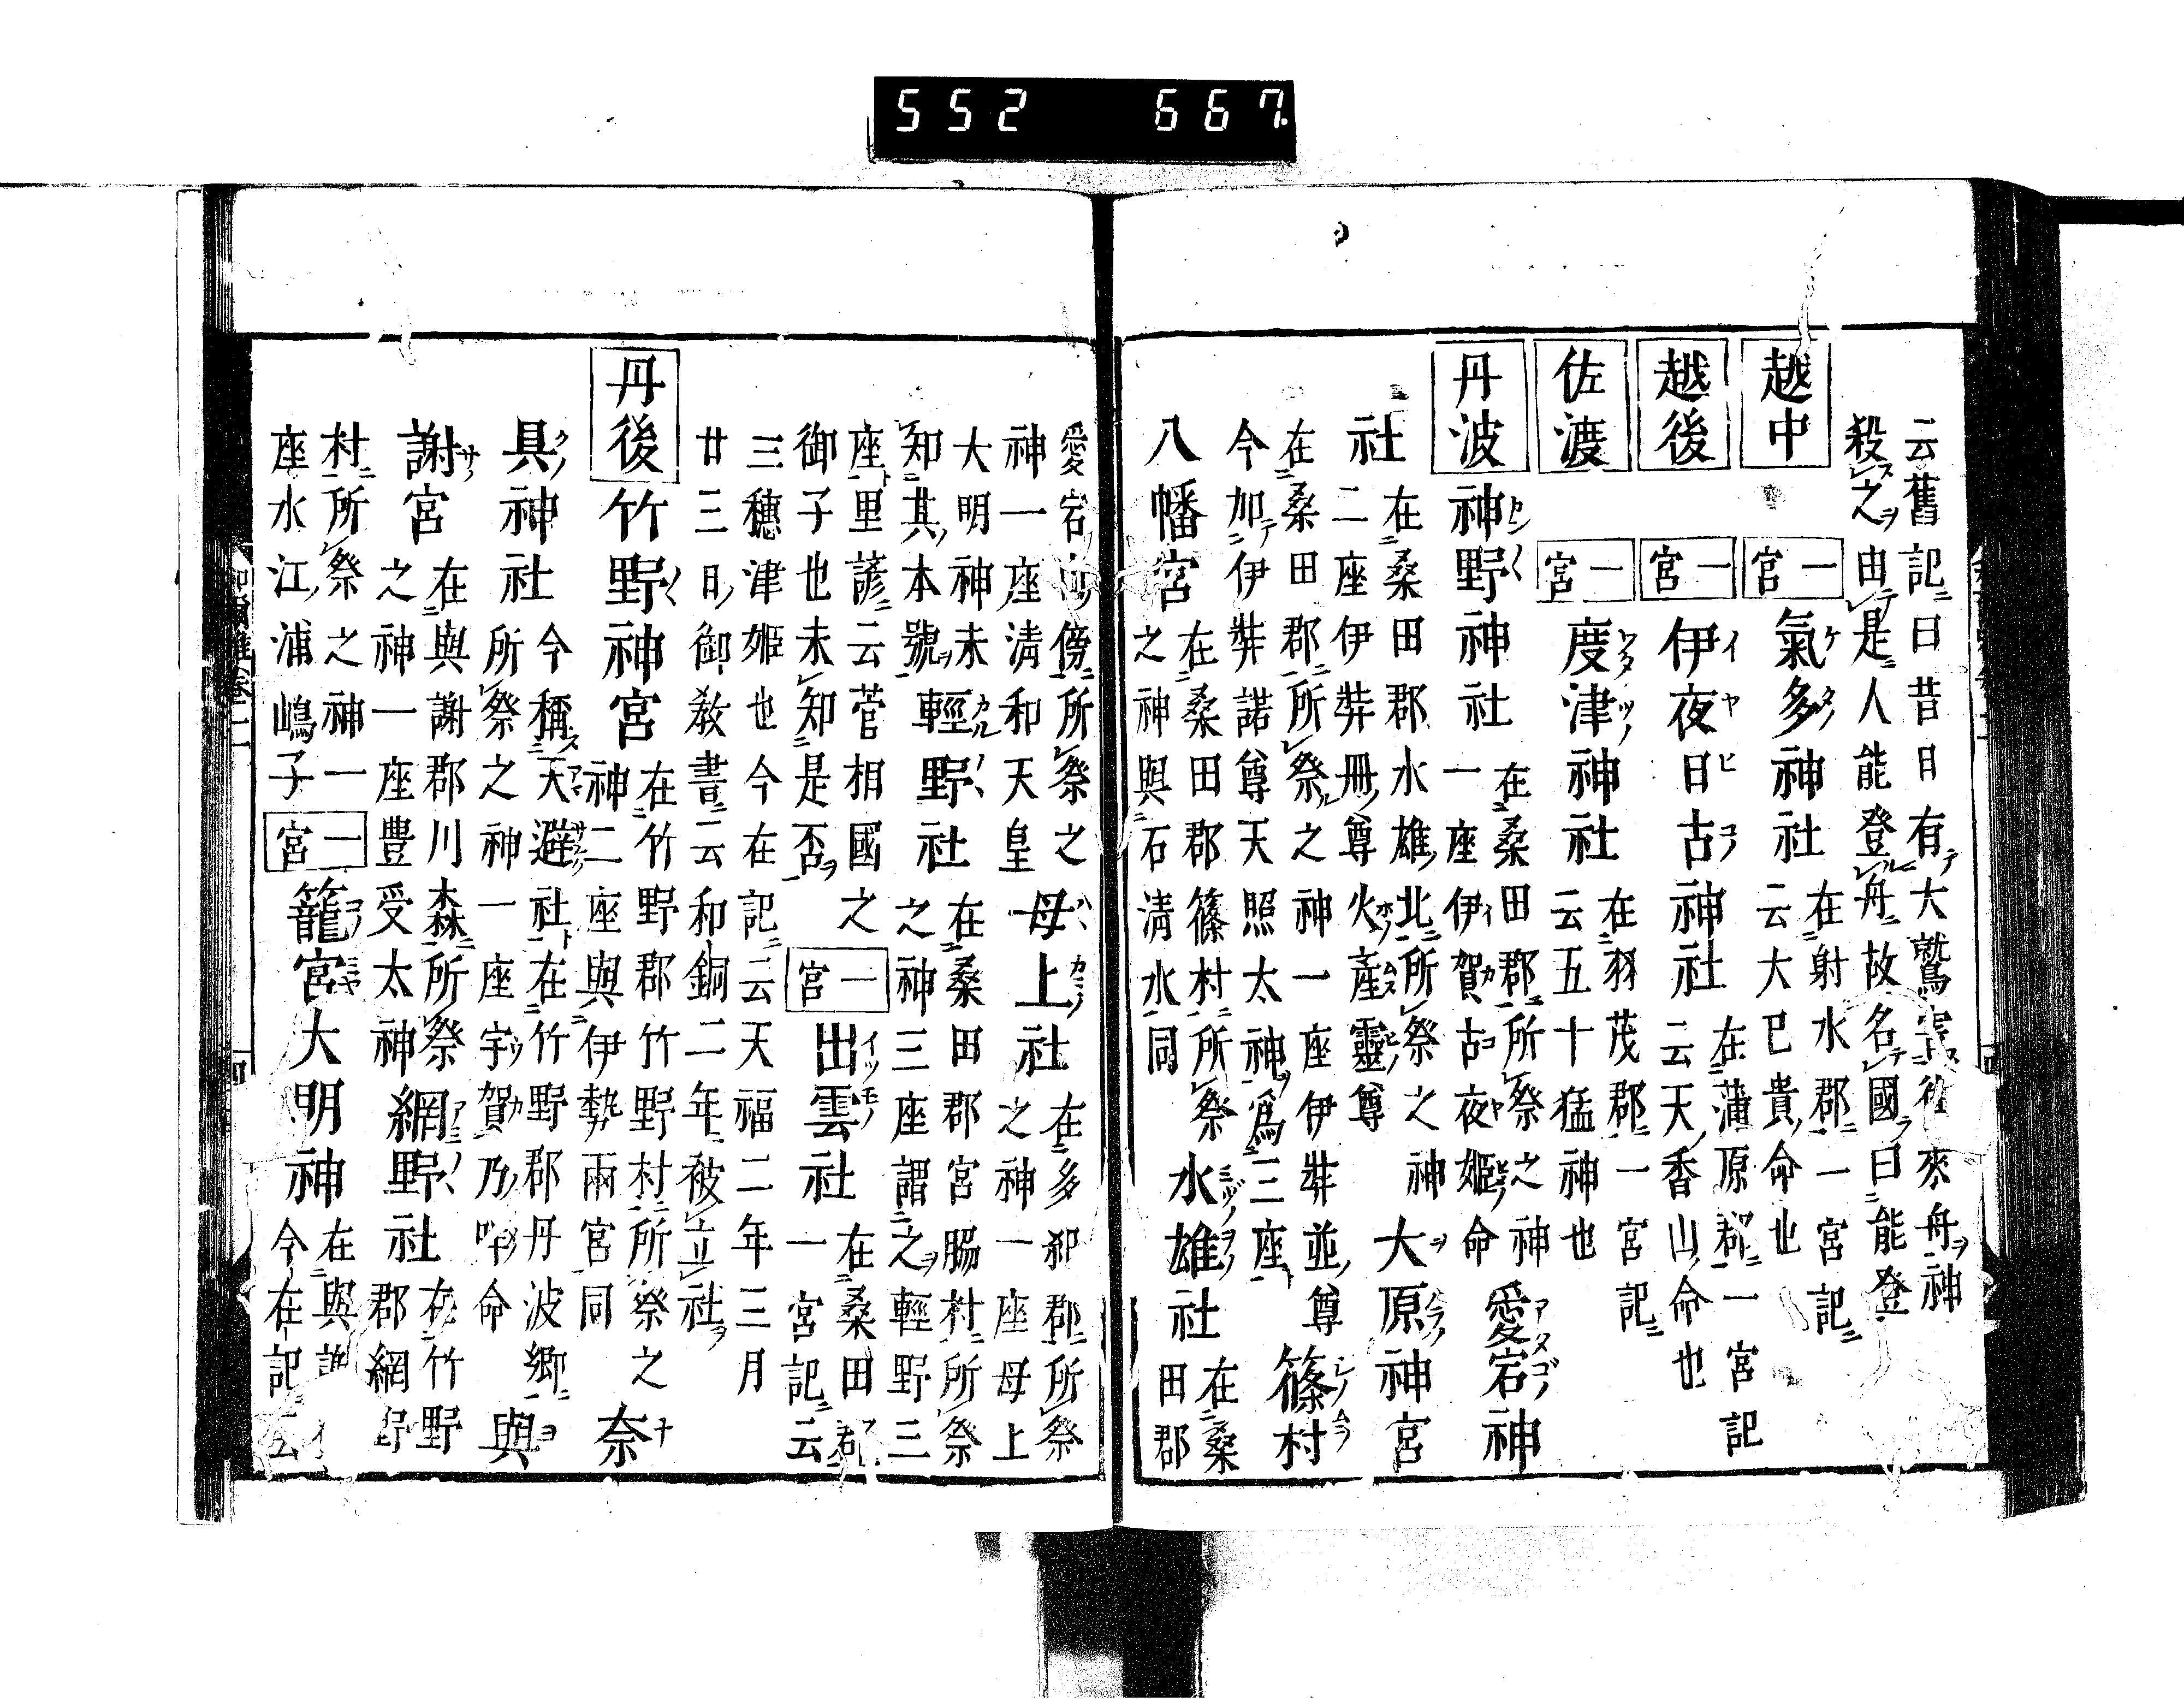 552 667
云舊記曰昔日有大鷲害往來舟神
殺之由是人能登舟故名國曰能登
越中 一宮 氣多神社 在射水郡一宮記
云大已貴命也
越後 一宮 伊夜日古神社 在蒲原郡一宮記
云天香山命也
佐渡 一宮 度津神社 在羽茂郡一宮記
云五十猛神也
丹波 神野神社 在桑田郡所祭之神
一座伊賀古夜姬命 愛宕神
社 在桑田郡水雄北所祭之神
二座伊弉冊尊火產靈尊 大原神宮
在桑田郡所祭之神一座伊弉並尊
今加伊弉諾尊天照太神爲三座 篠村
八幡宮 在桑田郡篠村所祭
之神與石清水同 水雄社 在桑
田郡
愛宕山傍所祭之
神一座清和天皇 母上社 在多郡所祭
之神一座母上
大明神未
知其本號 輕野社 在桑田郡宮腸村所祭
之神三座謂之輕野三
座里諺云菅相國之
御子也未知是否 一宮 出雲社 在桑田郡
一宮記云
三穗津姬也今在記云天福二年三月
廿三日御敎書云和銅二年被立社
丹後 竹野神宮 在竹野郡竹野村所祭之
神二座與伊勢兩宮同 奈
具神社 今稱天避社在竹野郡丹波鄉
所祭之神一座宇賀乃咩命 與
謝宮 在與謝郡川森所祭
之神一座豊受太神 網野社 在竹野
郡網野
村所祭之神一
座水江浦嶋子 一宮 籠宮大明神 在與謝
今在記云